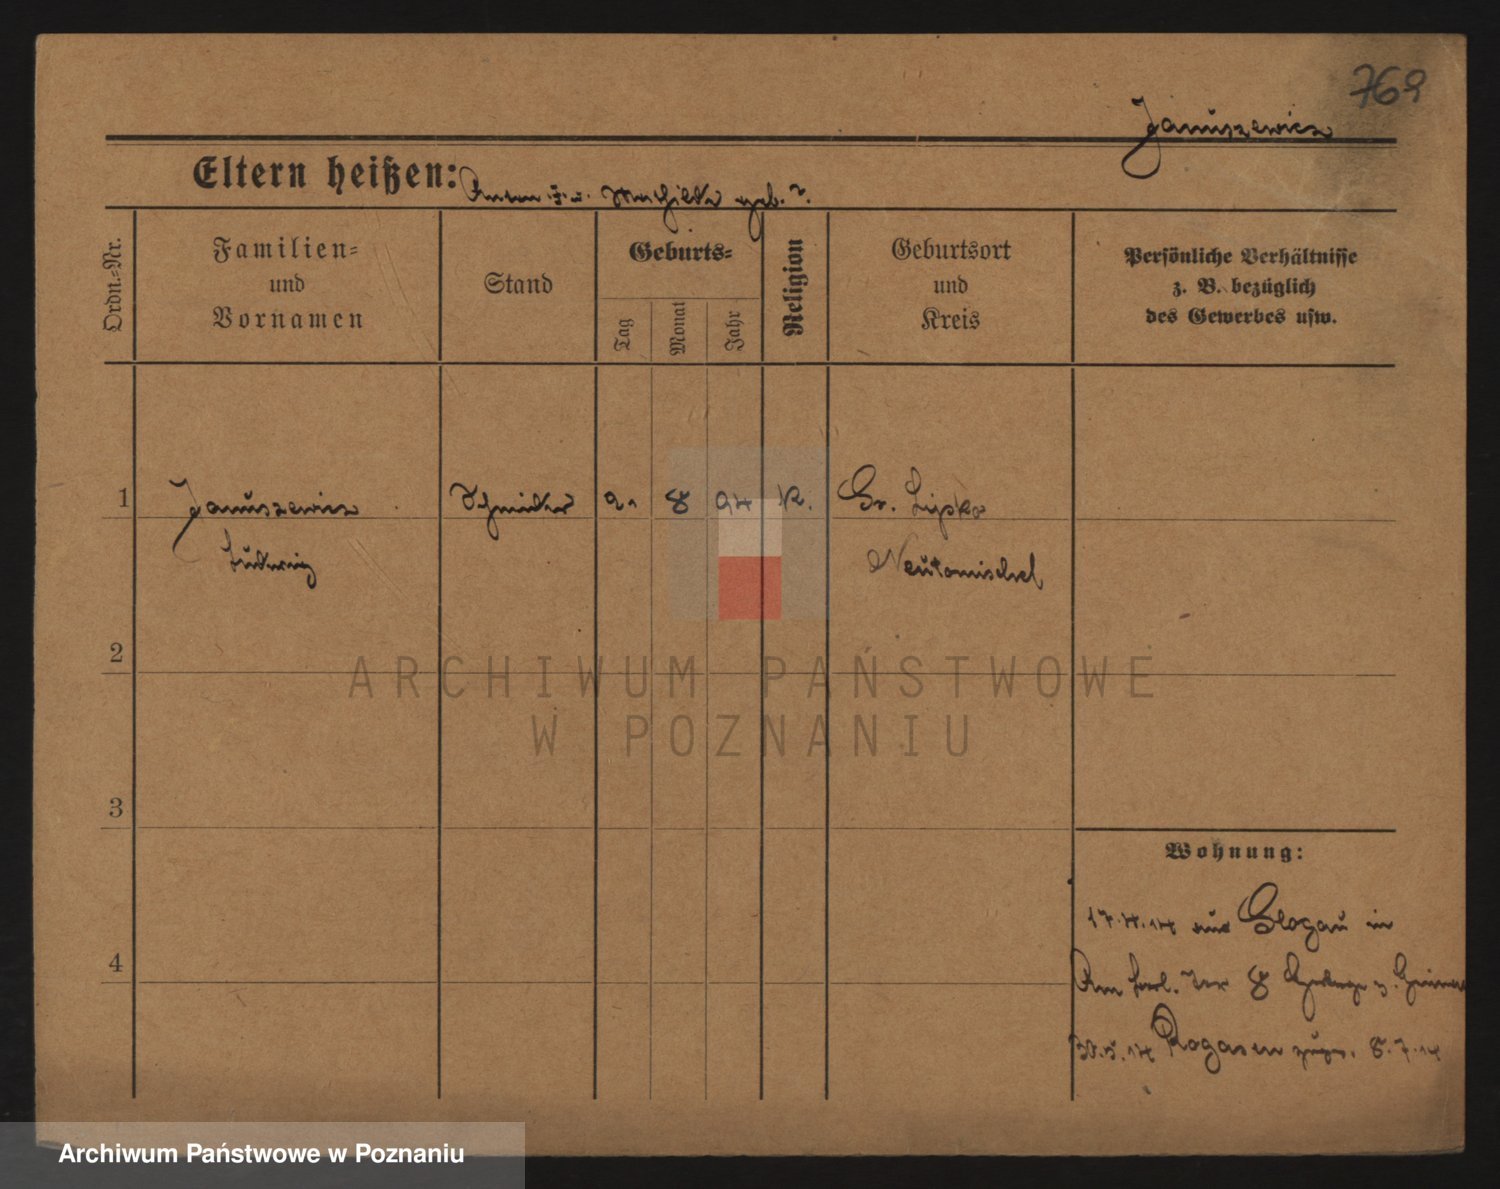 769
Januszewicz
Eltern heißen: Anton J. u. Mathilde geb. ?.
Ordn.-Nr.
Familien-
und
Vornamen
Stand
Geburts-
Tag
Monat
Jahr
Religion
Geburtsort
und
Kreis
Persönliche Verhältnisse
z. B. bezüglich
des Gewerbes usw.
1 Januszewicz Schneider 2. 8 94 K. Gr. Lipke
Ludwig Neutomischel
2
ARCHIWUM PAŃSTWOWE
W POZNANIU
3
Wohnung:
17.4.14 aus Glogau in
4
Am 8
30.5.14 Rogasen 8.7.14
Archiwum Państwowe w Poznaniu